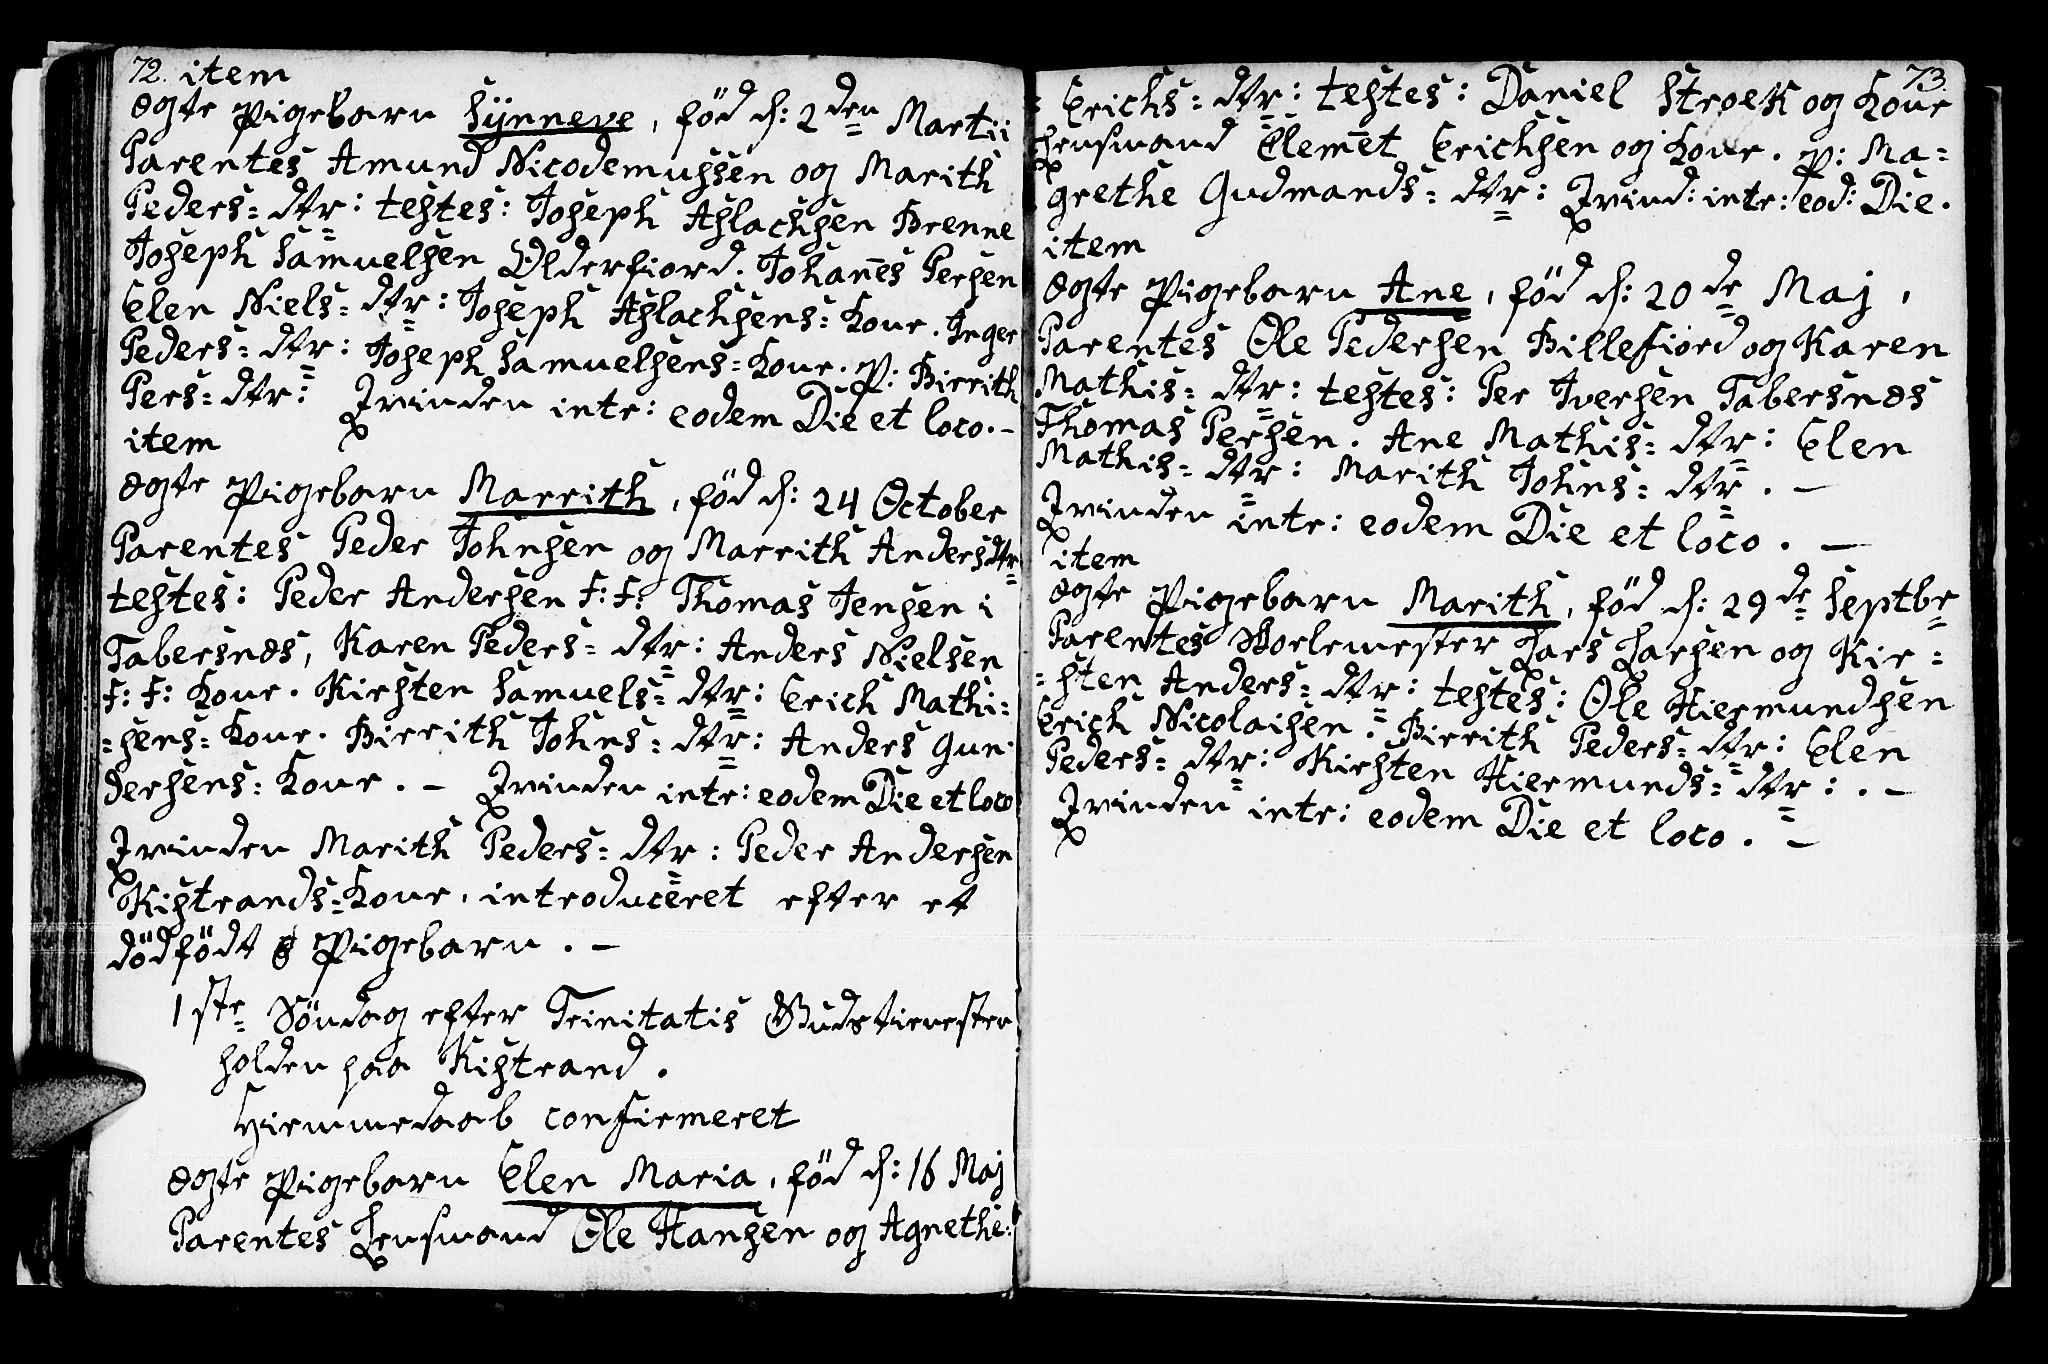 72. item
ægte Pigebarn Synneve, född d: 2den Martii
Parentes Amund Nicodemussen og Marith
Peders=dtr: testes: Joseph Aslachsen Brenne
Joseph Samuelsen Olderfiord. Johan̄es Persen
Elen Niels=dtr: Joseph Aslachsens=Kone. Inger
Peders=dtr: Joseph Samuelsens=Kone. P: Birrith
Pers=dtr: Qvinden intr: eodem Die et loco.–
item
ægte Pigebarn Marrith, född d: 24 October
Parentes Peder Johnsen og Marrith Andersdtr
testes: Peder Andersen F: F: Thomas Jensen i
Tabersnæs, Karen Peders=dtr: Anders Nielsen
F: F: Kone. Kirsten Samuels=dtr: Erich Mathi=
=sens=Kone. Birrith Johns=dtr: Anders Gun=
dersens=Kone. – Qvinden intr: eodem Die et loco
Qvinden Marith Peders=dtr: Peder Andersen
Kistrands=Kone, introduceret efter et
dödfödt Pigebarn. –
1ste Söndag efter Trinitatis Gudstienesten
holden paa Kistrand.
Hiemmedaab confirmeret
ægte Pigebarn Elen Maria, född d: 16 Maj
Parentes Lensmand Ole Hansen og Agnethe=
73.
=Erichs=dtr: testes: Daniel Stroek og Kone
Lensmand Clem̄et Erichsen og Kone. P: Ma=
grethe Gudmands=dtr: Qvind: intr: eod: Die.
item
ægte Pigebarn Ane, född d: 20de Maj,
Parentes Ole Pedersen Billefiord og Karen
Mathis=dtr: testes: Per Iversen Tabersnæs
Thomas Persen. Ane Mathis=dtr: Elen
Mathis=dtr: Marith Johns=dtr. –
Qvinden intr: eodem Die et loco. –
item
ægte Pigebarn Marith, född d: 29de Septbr
Parentes Skolemester Lars Larsen og Kir=
=sten Anders=dtr: testes: Ole Hiermundsen
Erich Nicolaisen. Birrith Peders=dtr: Elen
Peders=dtr: Kirsten Hiermunds=dtr: . –
Qvinden intr: eodem Die et loco. –